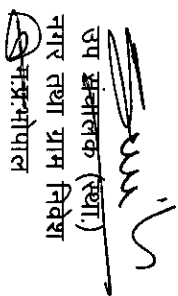 उप संचालक (स्था.)
नगर तथा ग्राम निवेश
म.प्र.भोपाल